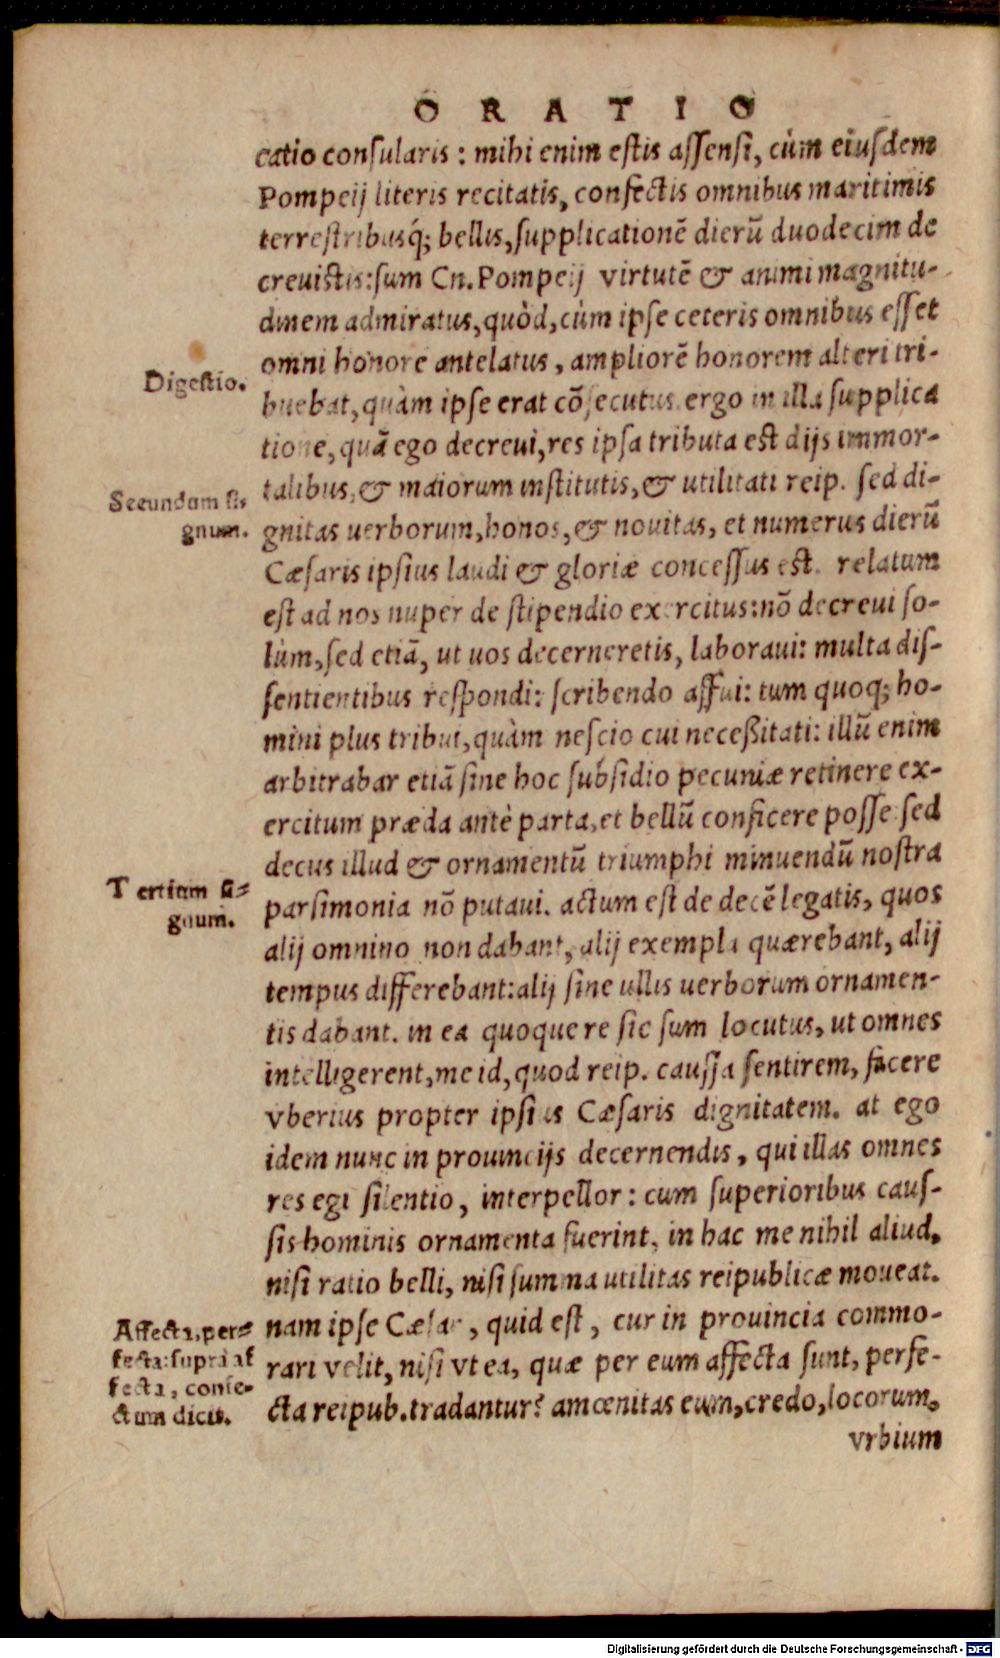 ORATIO
catio consularis : mihi enim estis assensi, cùm eiusdem
Pompeij literis recitatis, confectis omnibus maritimis
terrestribusq́; bellis, supplicationē dierũ duodecim de
creuistis: sum Cn. Pompeij virtutē & animi magnitu-
dinem admiratus, quòd, cùm ipse ceteris omnibus esset
omni honore antelatus, ampliorē honorem alteri tri-
Digestio.
buebat, quàm ipse erat cõsecutus. ergo in illa supplica
tione, quã ego decreui, res ipsa tributa est dijs immor-
talibus, & maiorum institutis, & utilitati reip. sed di-
Secundum si-
gnum.
gnitas uerborum, honos, & nouitas, et numerus dierũ
Cæsaris ipsius laudi & gloriæ concessus est. relatum
est ad nos nuper de stipendio exercitus: nõ decreui so-
lùm, sed etiã, ut uos decerneretis, laboraui: multa dis-
sentientibus respondi: scribendo affui: tum quoq; ho-
mini plus tribui, quàm nescio cui neceßitati: illũ enim
arbitrabar etiã sine hoc subsidio pecuniæ retinere ex-
ercitum præda antè parta, et bellũ conficere posse: sed
decus illud & ornamentũ triumphi minuendũ nostra
Tertium si-
gnum.
parsimonia nõ putaui. actum est de decē legatis, quos
alij omnino non dabant, alij exempla quærebant, alij
tempus differebant: alij sine ullis uerborum ornamen-
tis dabant. in ea quoque re sic sum locutus, ut omnes
intelligerent, me id, quod reip. caussa sentirem, facere
vberius propter ipsius Cæsaris dignitatem. at ego
idem nunc in prouincijs decernendis, qui illas omnes
res egi silentio, interpellor: cum superioribus caus-
sis hominis ornamenta fuerint, in hac me nihil aliud,
nisi ratio belli, nisi summa utilitas reipublicæ moueat.
nam ipse Cæsar, quid est, cur in prouincia commo-
Affecta, per-
fecta: suprà af
fecta, confe-
ctum dicit.
rari velit, nisi vt ea, quæ per eum affecta sunt, perfe-
cta reipub. tradantur? amœnitas eum, credo, locorum,
vrbium
Digitalisierung gefördert durch die Deutsche Forschungsgemeinschaft - DFG